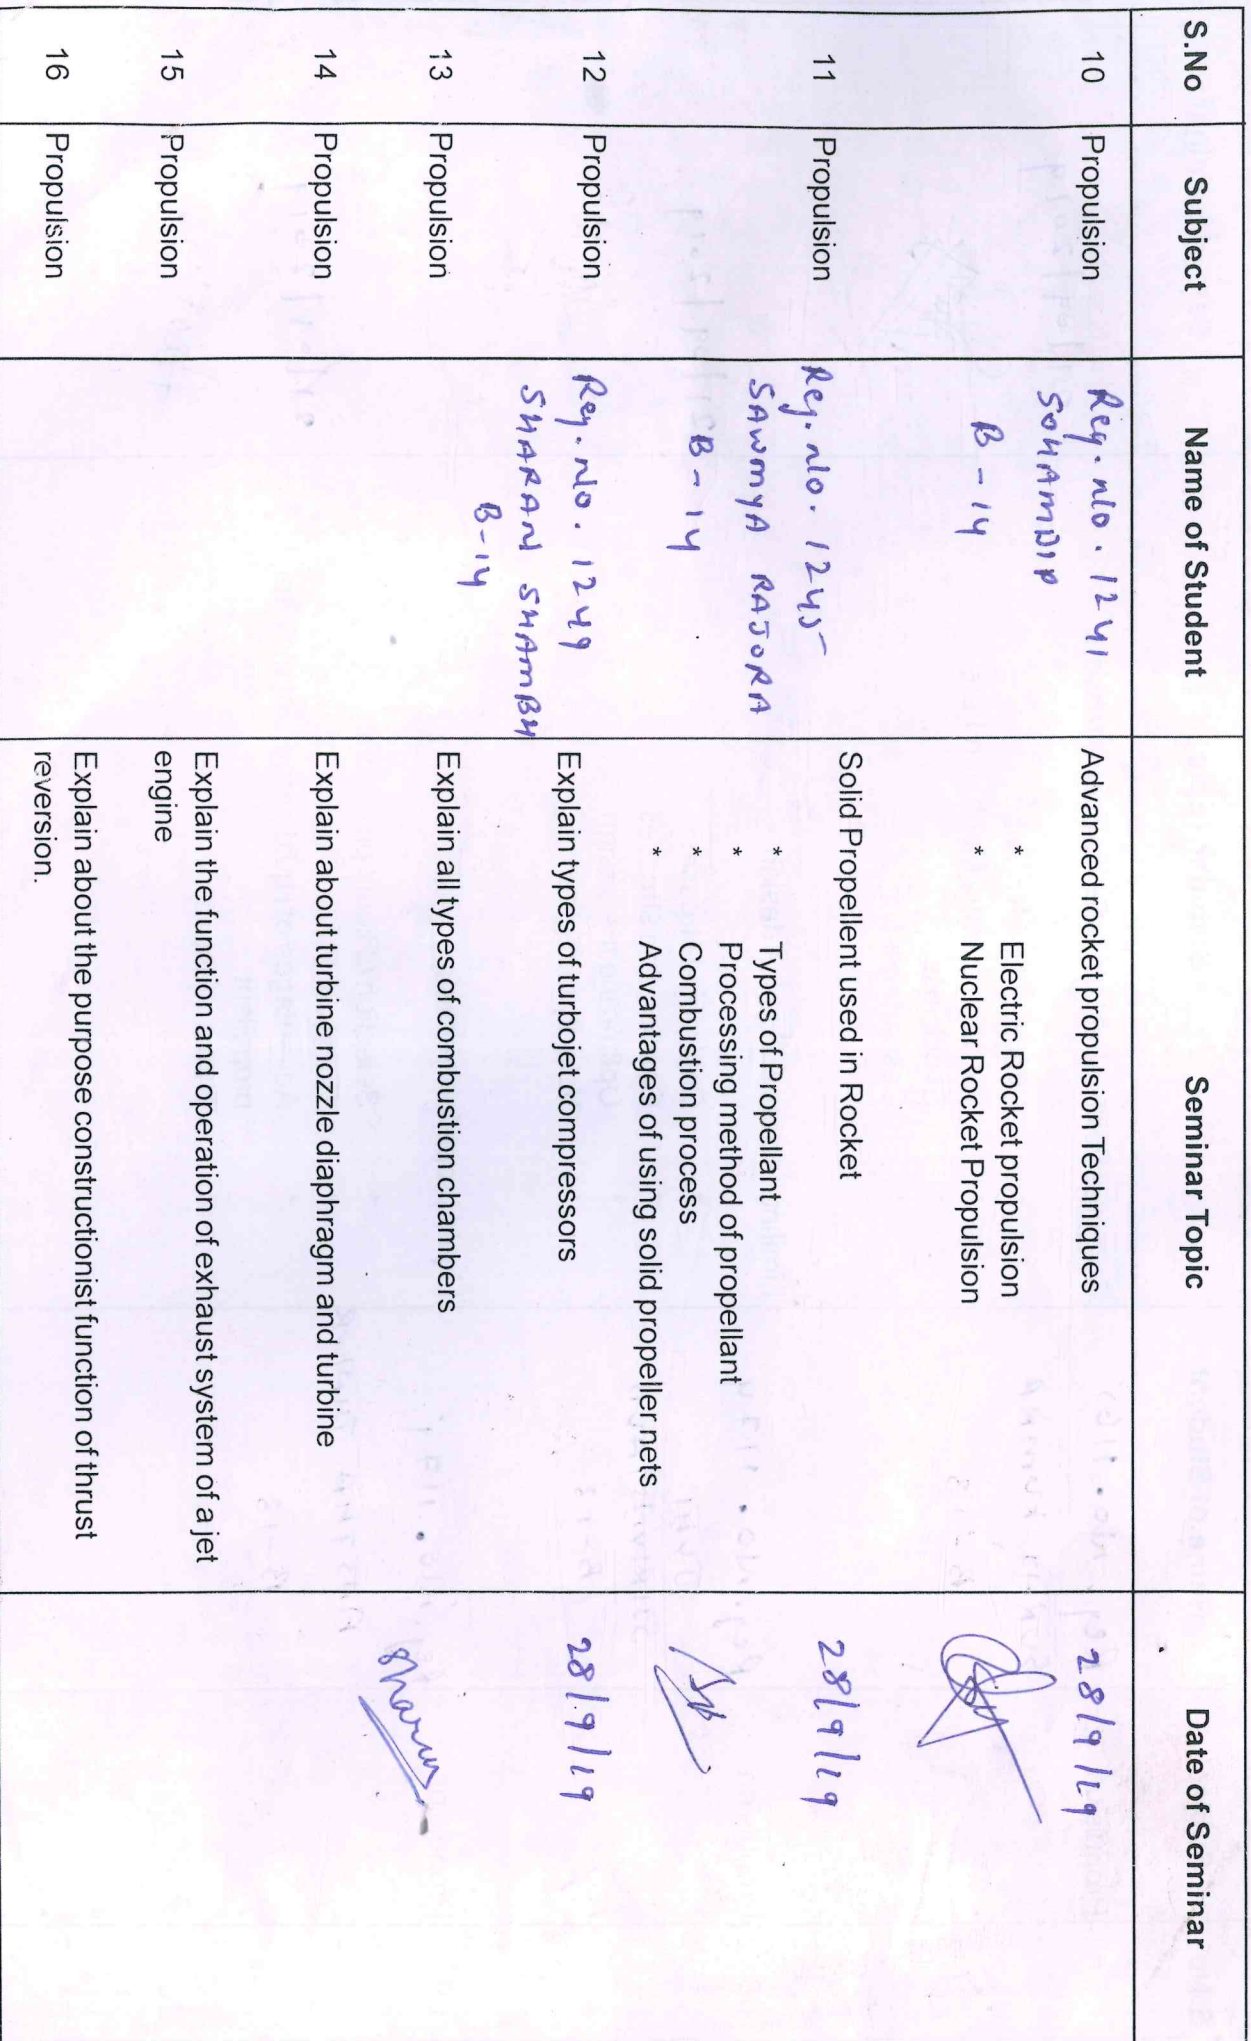 S.No Subject Name of Student Seminar Topic Date of Seminar
10 Propulsion Reg. No. 1241 Advanced rocket propulsion Techniques 28/9/19
SOHAMDIP
* Electric Rocket propulsion
B-14 * Nuclear Rocket Propulsion
11 Propulsion Reg. No. 1245 Solid Propellent used in Rocket 28/9/19
SAWMYA RAJORA * Types of Propellant
* Processing method of propellant
B-14 * Combustion process
* Advantages of using solid propeller nets
12 Propulsion Reg. No. 1249 Explain types of turbojet compressors 28/9/19
SHARAN SHAMBH
B-14
13 Propulsion Explain all types of combustion chambers
Sharan
14 Propulsion Explain about turbine nozzle diaphragm and turbine
15 Propulsion Explain the function and operation of exhaust system of a jet
engine
16 Propulsion Explain about the purpose constructionist function of thrust
reversion.